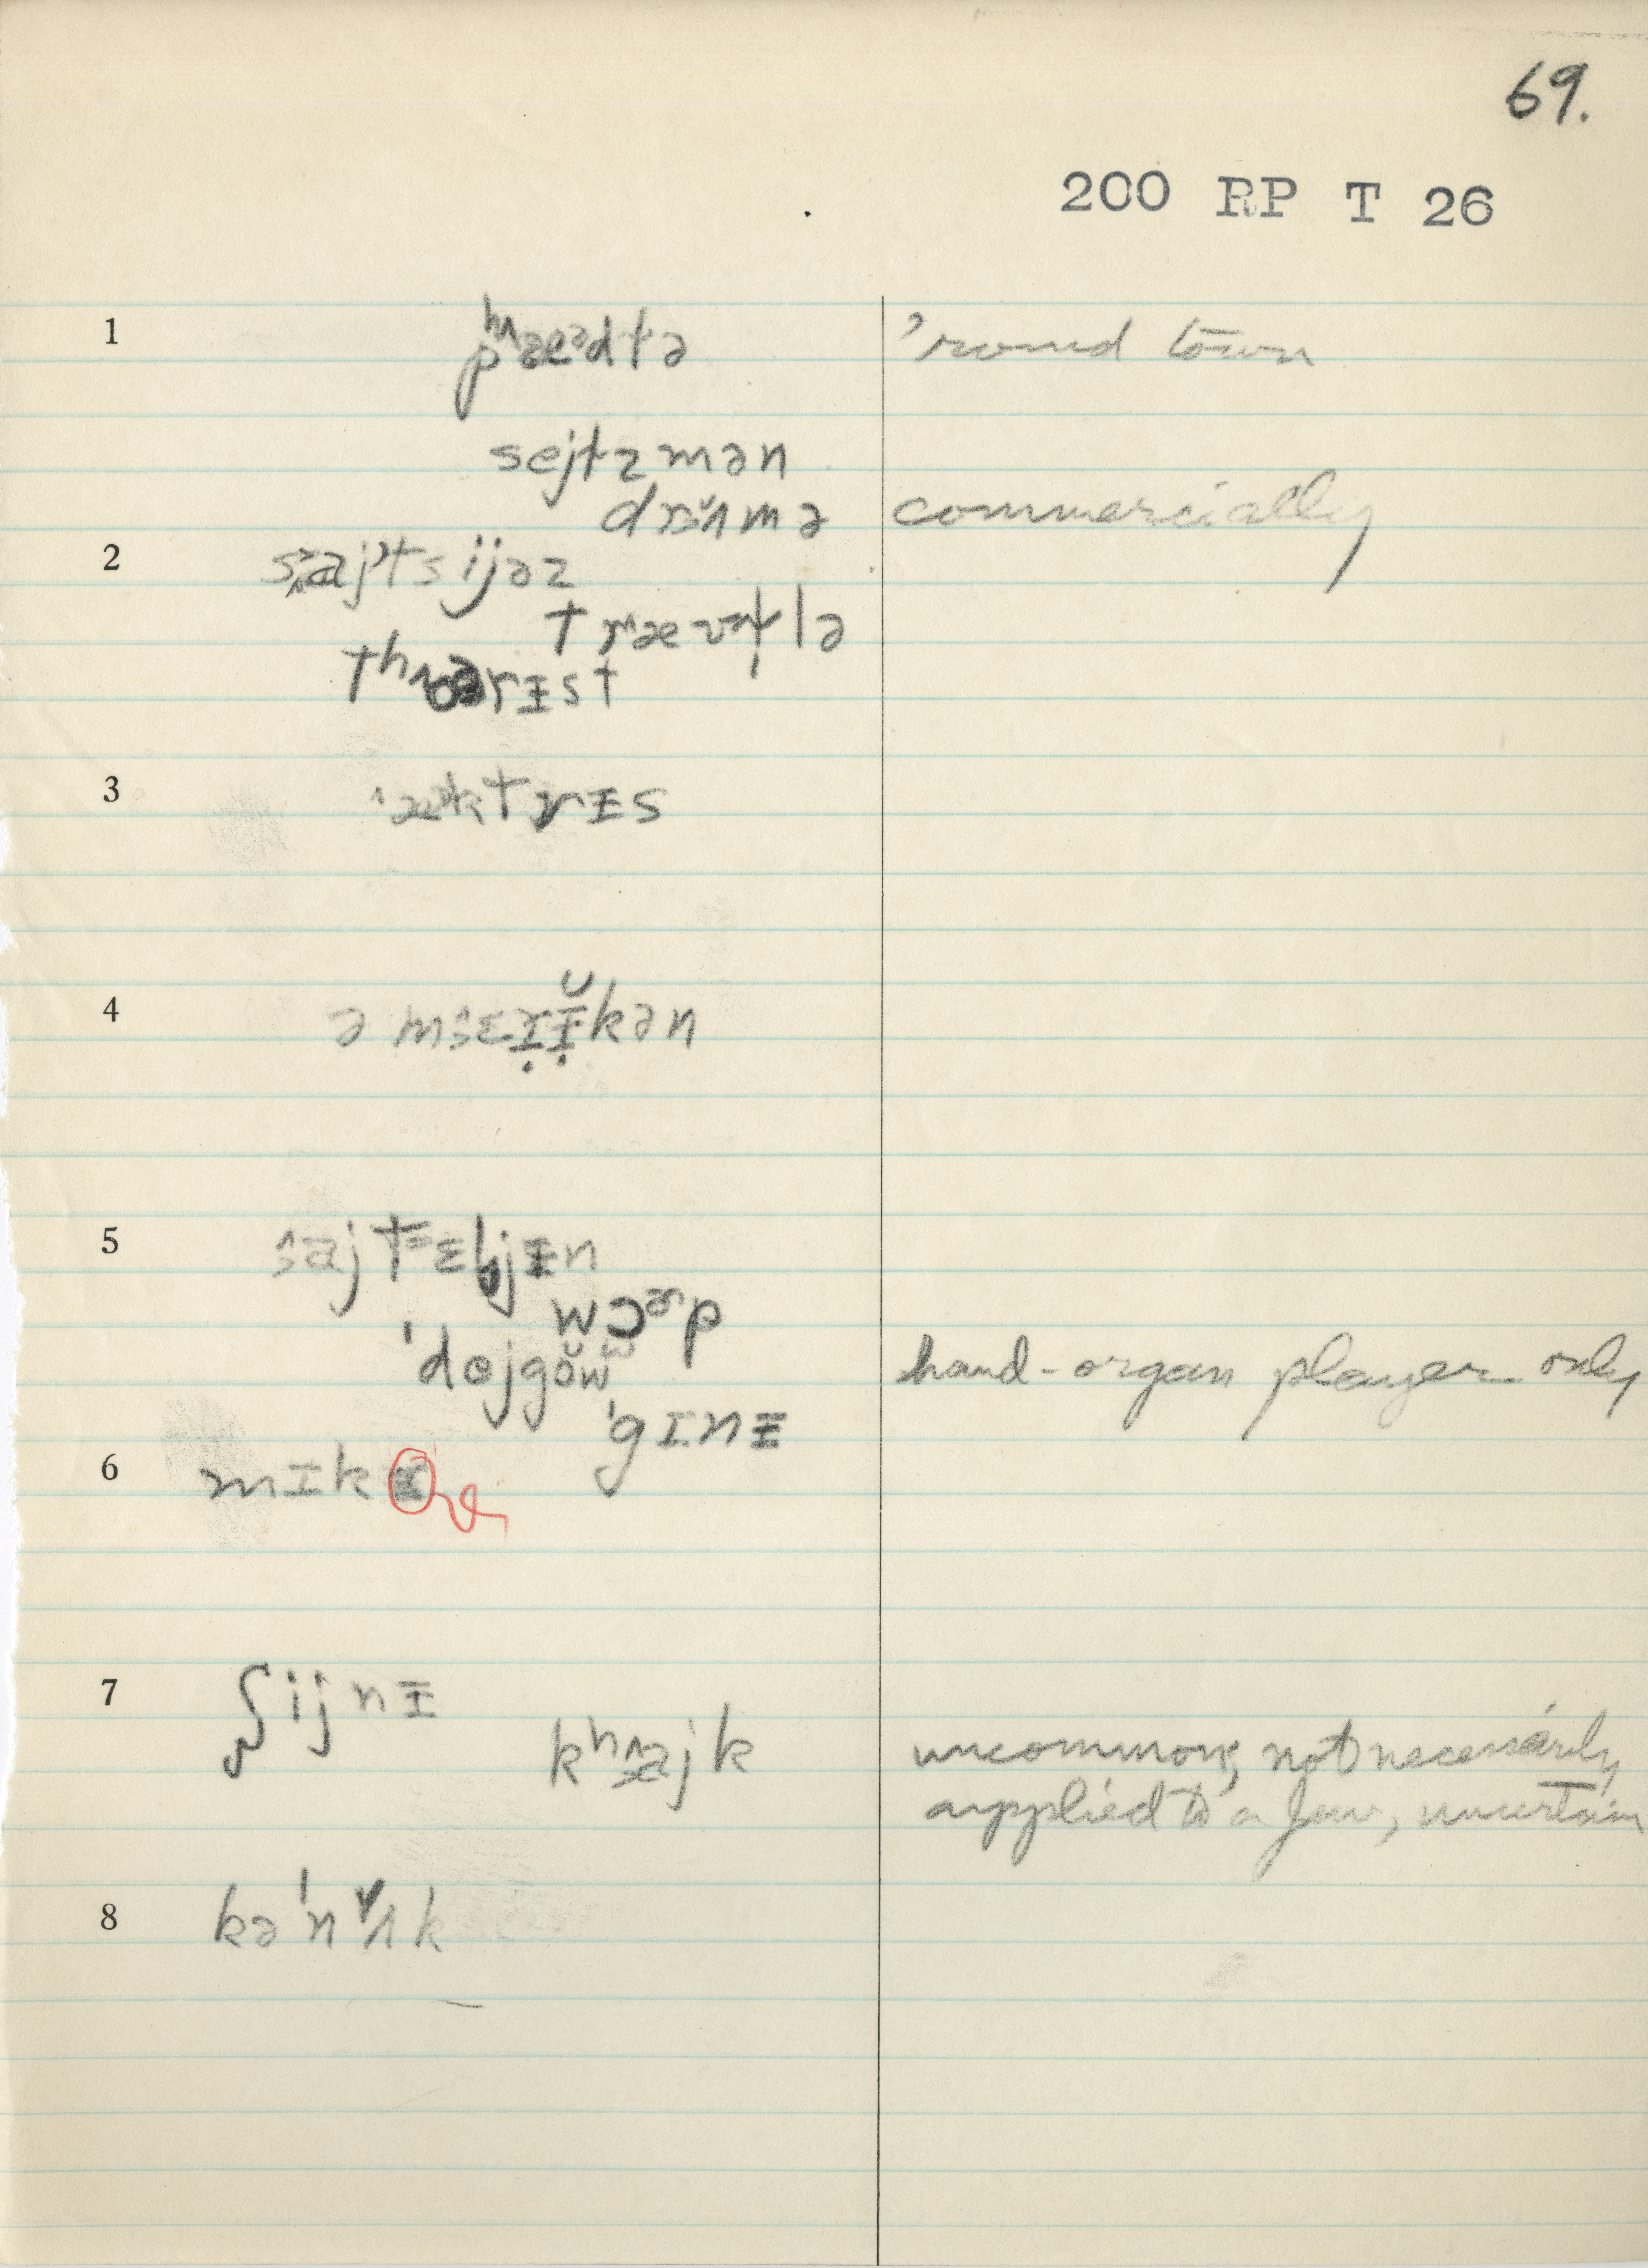 69.
200 RP T 26
1 pʰæᵊdtə 'round town
sejtzmən
drʌ̆mə commercially
2 sajtsijəz
trævələ
tʰərɪst
3 æktrɪs
4 əmɛrɪ̆kən
5 ajtɛljɪn
wɔᵊp
'dejgŏw hand-organ player only
'gɪnɪ
6 mɪk
7 ʃijnɪ
kʰajk uncommon, not necessarily
applied to a Jew, uncertain
8 kə'nʌk